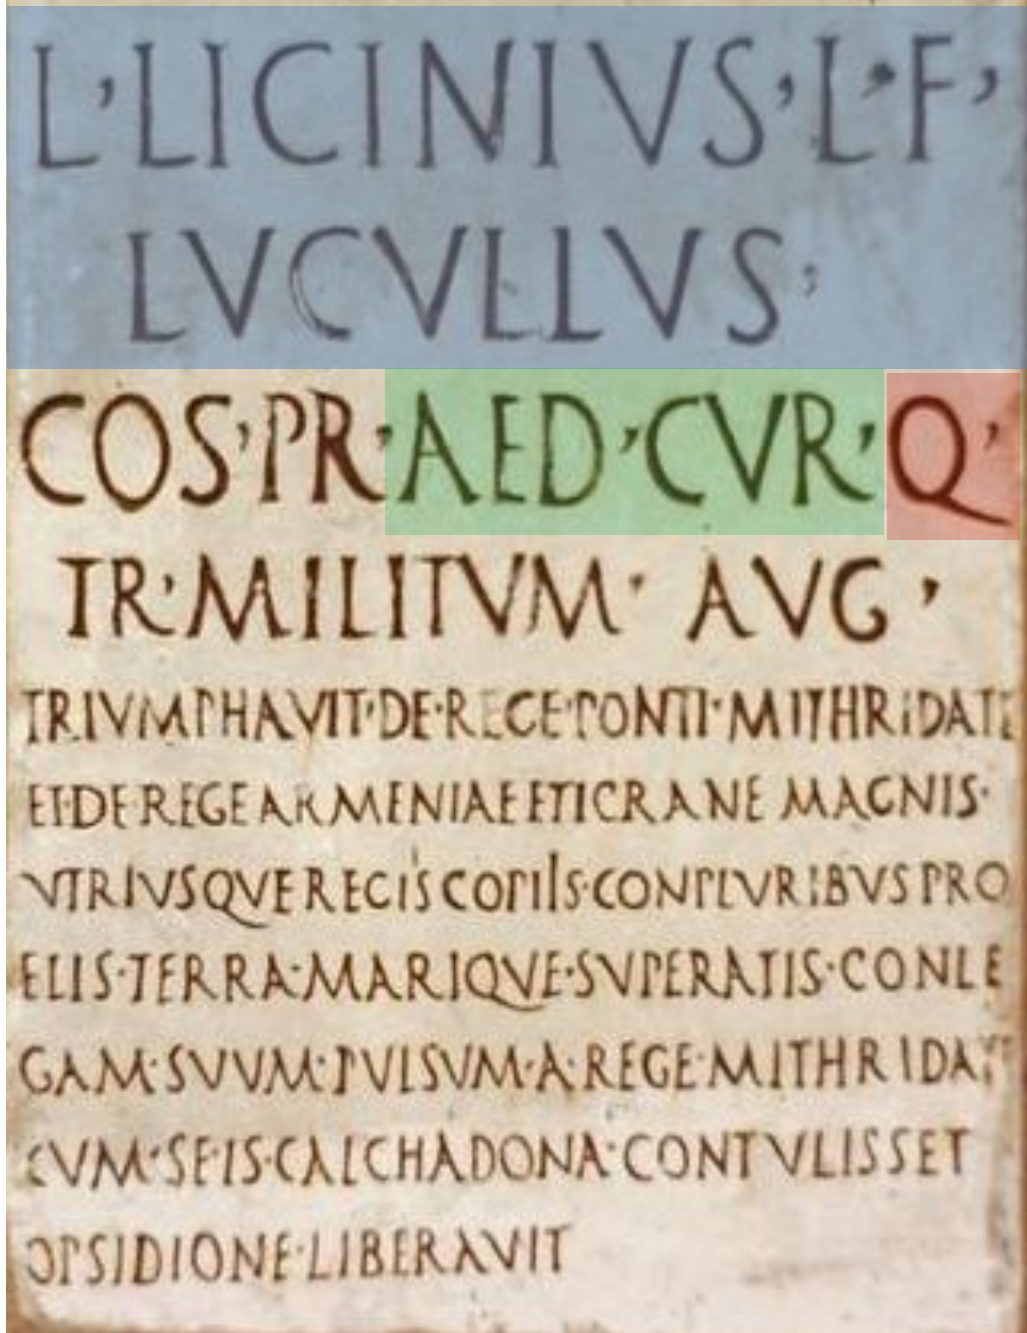 L·LICINIVS·L·F·
LVCVLLVS·
COS·PR·AED·CVR·Q·
TR·MILITVM·AVG·
TRIVMPHAVIT·DE·REGE·PONTI·MITHRIDATE
ET·DE·REGE ARMENIAE ETIGRANE MAGNIS·
VTRIVSQVE REGIS COPIIS·CONPLVRIBVS PRO
ELIS·TERRA·MARIQVE·SVPERATIS·CONLE
GAM·SVVM·PVLSVM·A·REGE·MITHRIDATE
CVM·SE·IS·CALCHADONA·CONTVLISSET
OPSIDIONE·LIBERAVIT